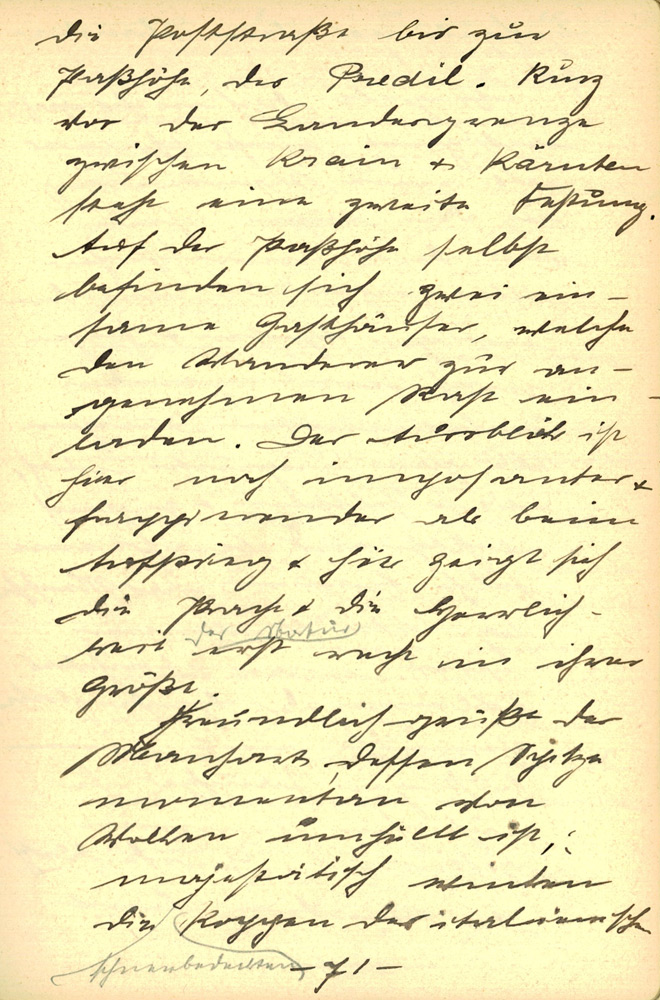 die Poststraße bis zur
Paßhöhe, des Predil. Kurz
vor der Landesgrenze
zwischen Krain & Kärnten
steht eine zweite Festung.
Auf der Paßhöhe selbst
befinden sich zwei ein-
same Gasthäuser, welche
den Wanderer zur an-
genehmen Rast ein-
laden. Der Ausblick ist
hier noch imposanter &
frappirender als beim
Aufstieg & hier zeigt sich
die Pracht & die Herrlich-
keit der Natur erst recht in ihrer
Größe.
Freundlich grüßt der
Manhart, dessen Spitze
momentan von
Wolken umhüllt ist,
majestätisch winken
die schneebedeckten Koppen der italienischen
- 71 -